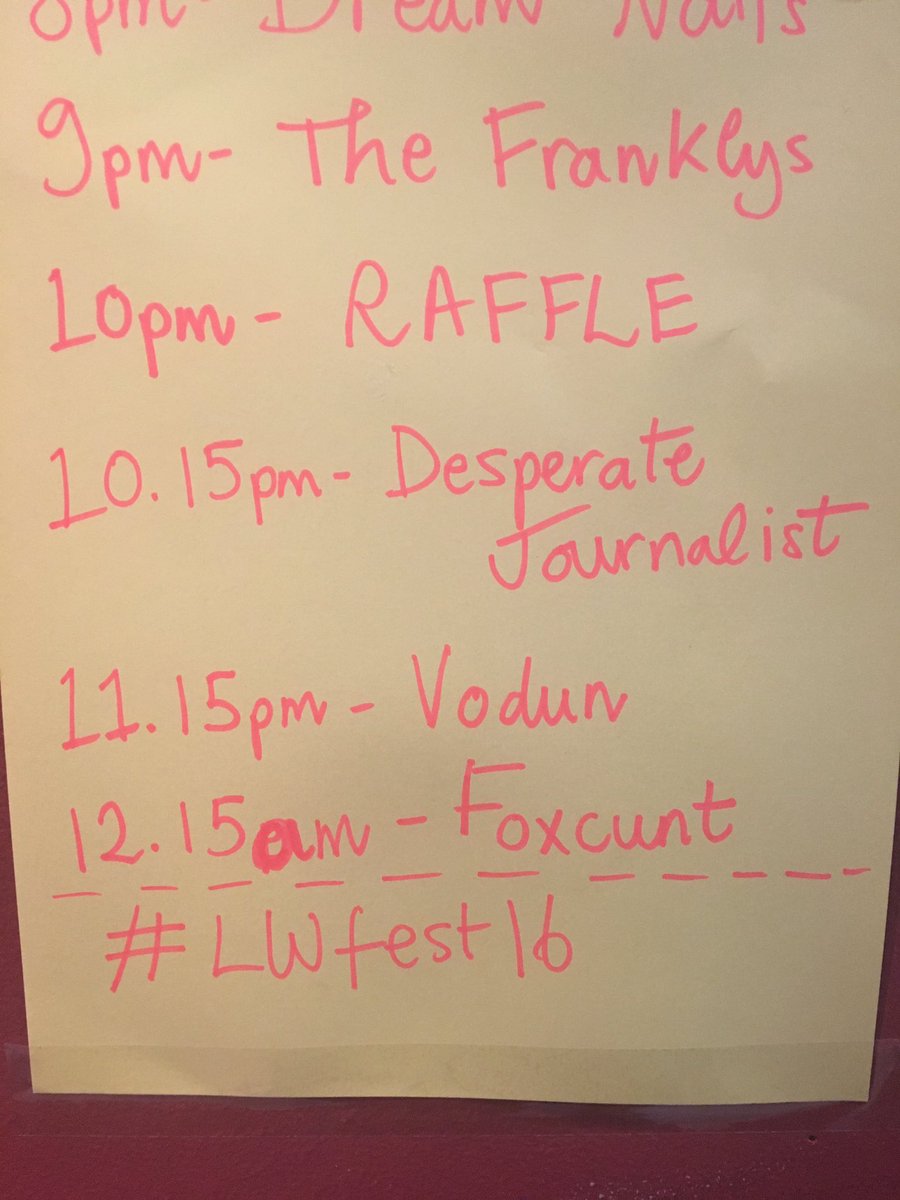 8pm- Dream Nails
9pm- The Franklys
10pm- RAFFLE
10.15pm- Desperate
Journalist
11.15pm- Vodun
12.15am- Foxcunt
#LWfest16